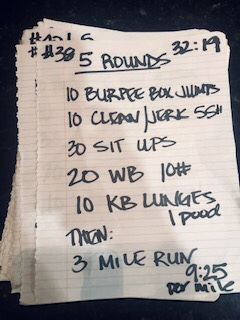 # #38 5 ROUNDS 32:19
10 BURPEE BOX JUMPS
10 CLEAN/JERK 55#
30 SIT UPS
20 WB 10#
10 KB LUNGES
1 pood
THEN:
3 MILE RUN
9:25
per mile